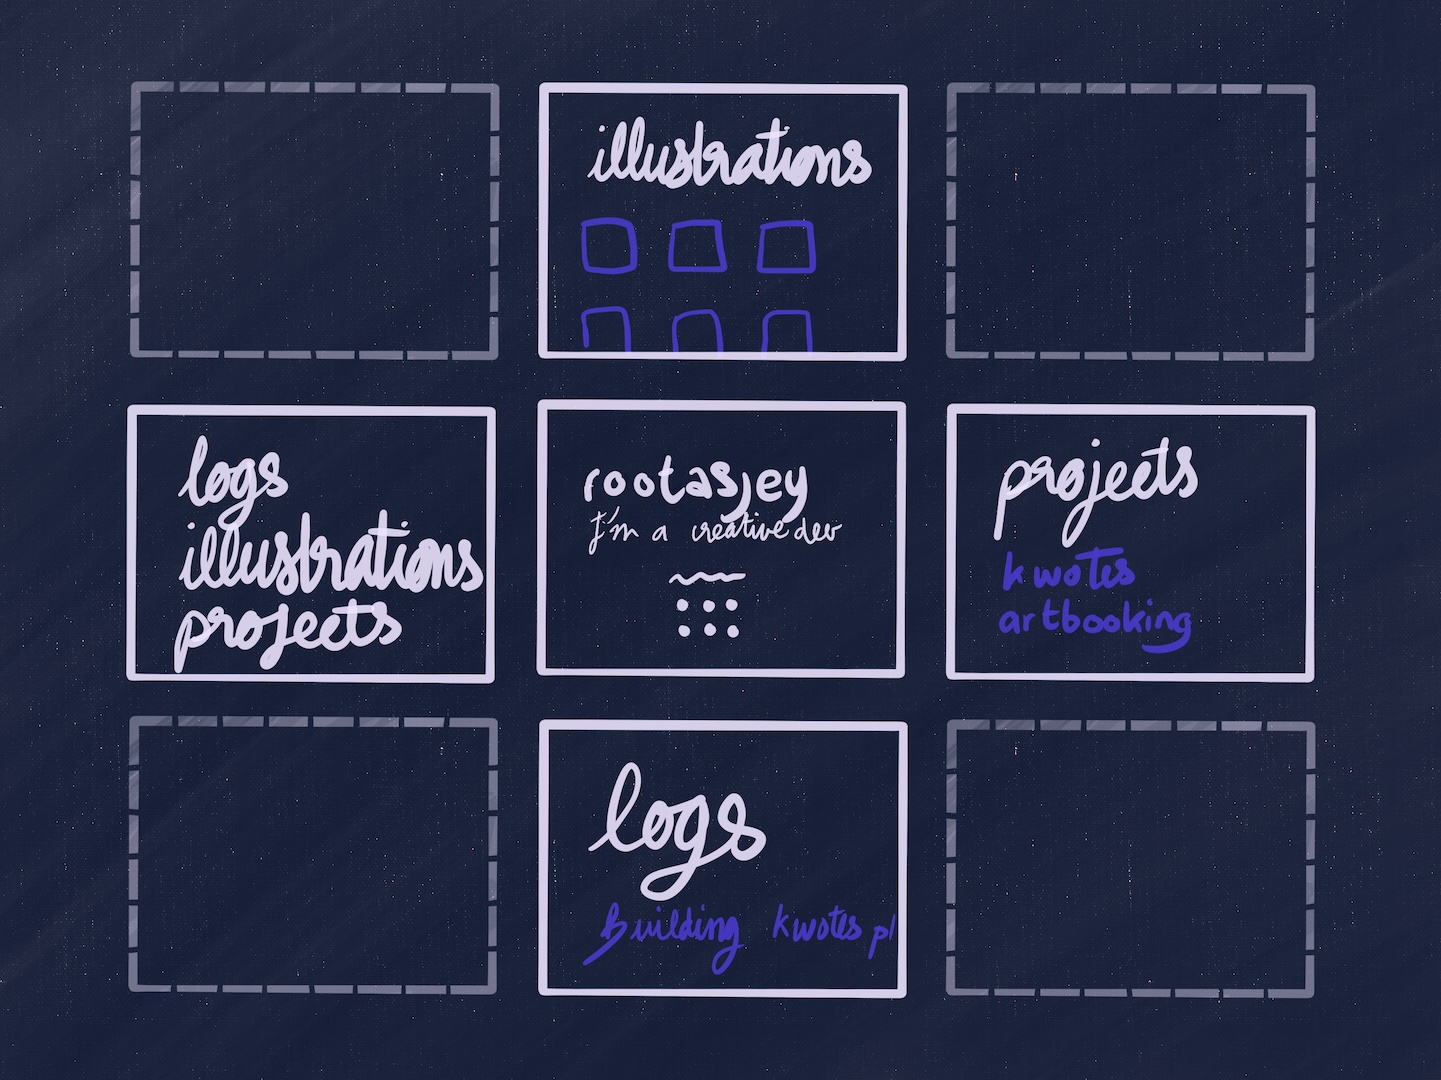 illustrations
logs
illustrations
projects
rootasjey
I'm a creative dev
projects
kwotes
artbooking
logs
Building kwotes pl